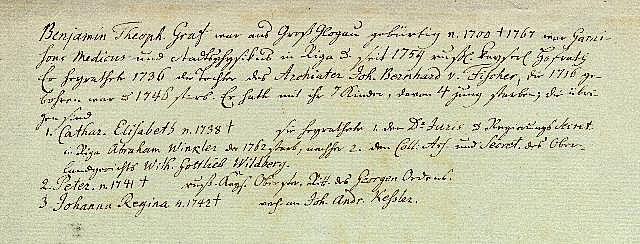 Benjamin Theoph. Graf war aus Groß Glogau gebürtig n. 1700 † 1767 war Garni-
sons Medicus und Stadtphysikus in Riga & seit 1754 russ. Kayserl. Hofrath
Er heyrathete 1736 die Tochter des Archiater Joh. Bernhard v. Fischer, die 1716 ge-
boren war & 1748 starb. Er hatte mit ihr 7 Kinder, davon 4 jung starben; die übri-
gen sind
1. Cathar. Elisabeth n. 1738 † sie heyrathete 1. den Dr Juris & Regierungs Secret.
in Riga Abraham Winkler der 1762 starb, nachher 2. den Coll: Ass. und Secret. des Ober-
landgerichts Wilh. Gottlieb Wildberg.
2. Peter. n. 1741 † russ. Obrister, Ritt. des Georgen Ordens.
3 Johanna Regina n. 1742 † verh. an Joh. Andr. Kessler.